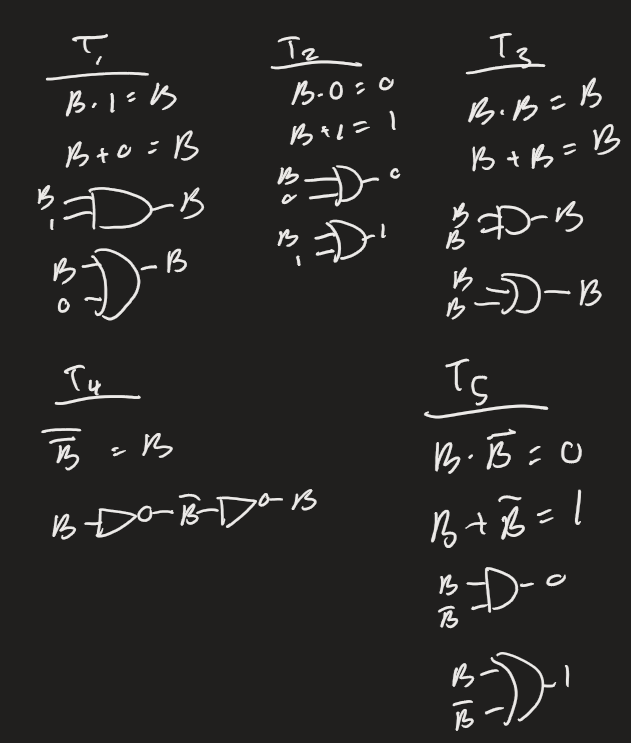 T₁
B · 1 = B
B + 0 = B
B
1
B
B
0
B
T₂
B · 0 = 0
B + 1 = 1
B
0
0
B
1
1
T₃
B · B = B
B + B = B
B
B
B
B
B
B
T₄
B̿ = B
B B̅ B
T₅
B · B̅ = 0
B + B̅ = 1
B
B̅
0
B
B̅
1